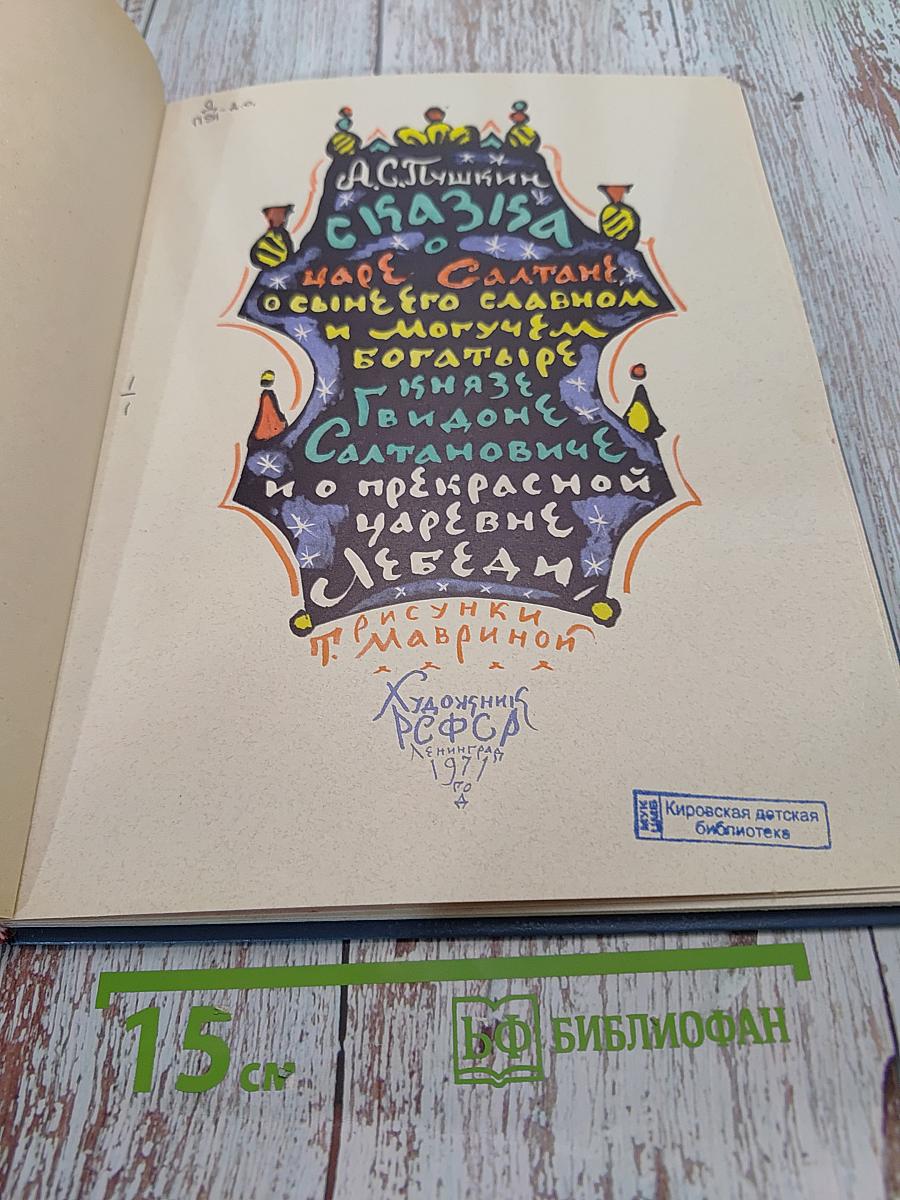 А.С.Пушкин
Сказка
о
царе Салтане,
о сыне его славном
и могучем
богатыре
князе
Гвидоне
Салтановиче
и о прекрасной
царевне
Лебеди
рисунки
Т. Мавриной
Художник
РСФСР
Ленинград
1971
го
д
МУК
ЦМБ
Кировская детская
библиотека
15 см
БФ БИБЛИОФАН